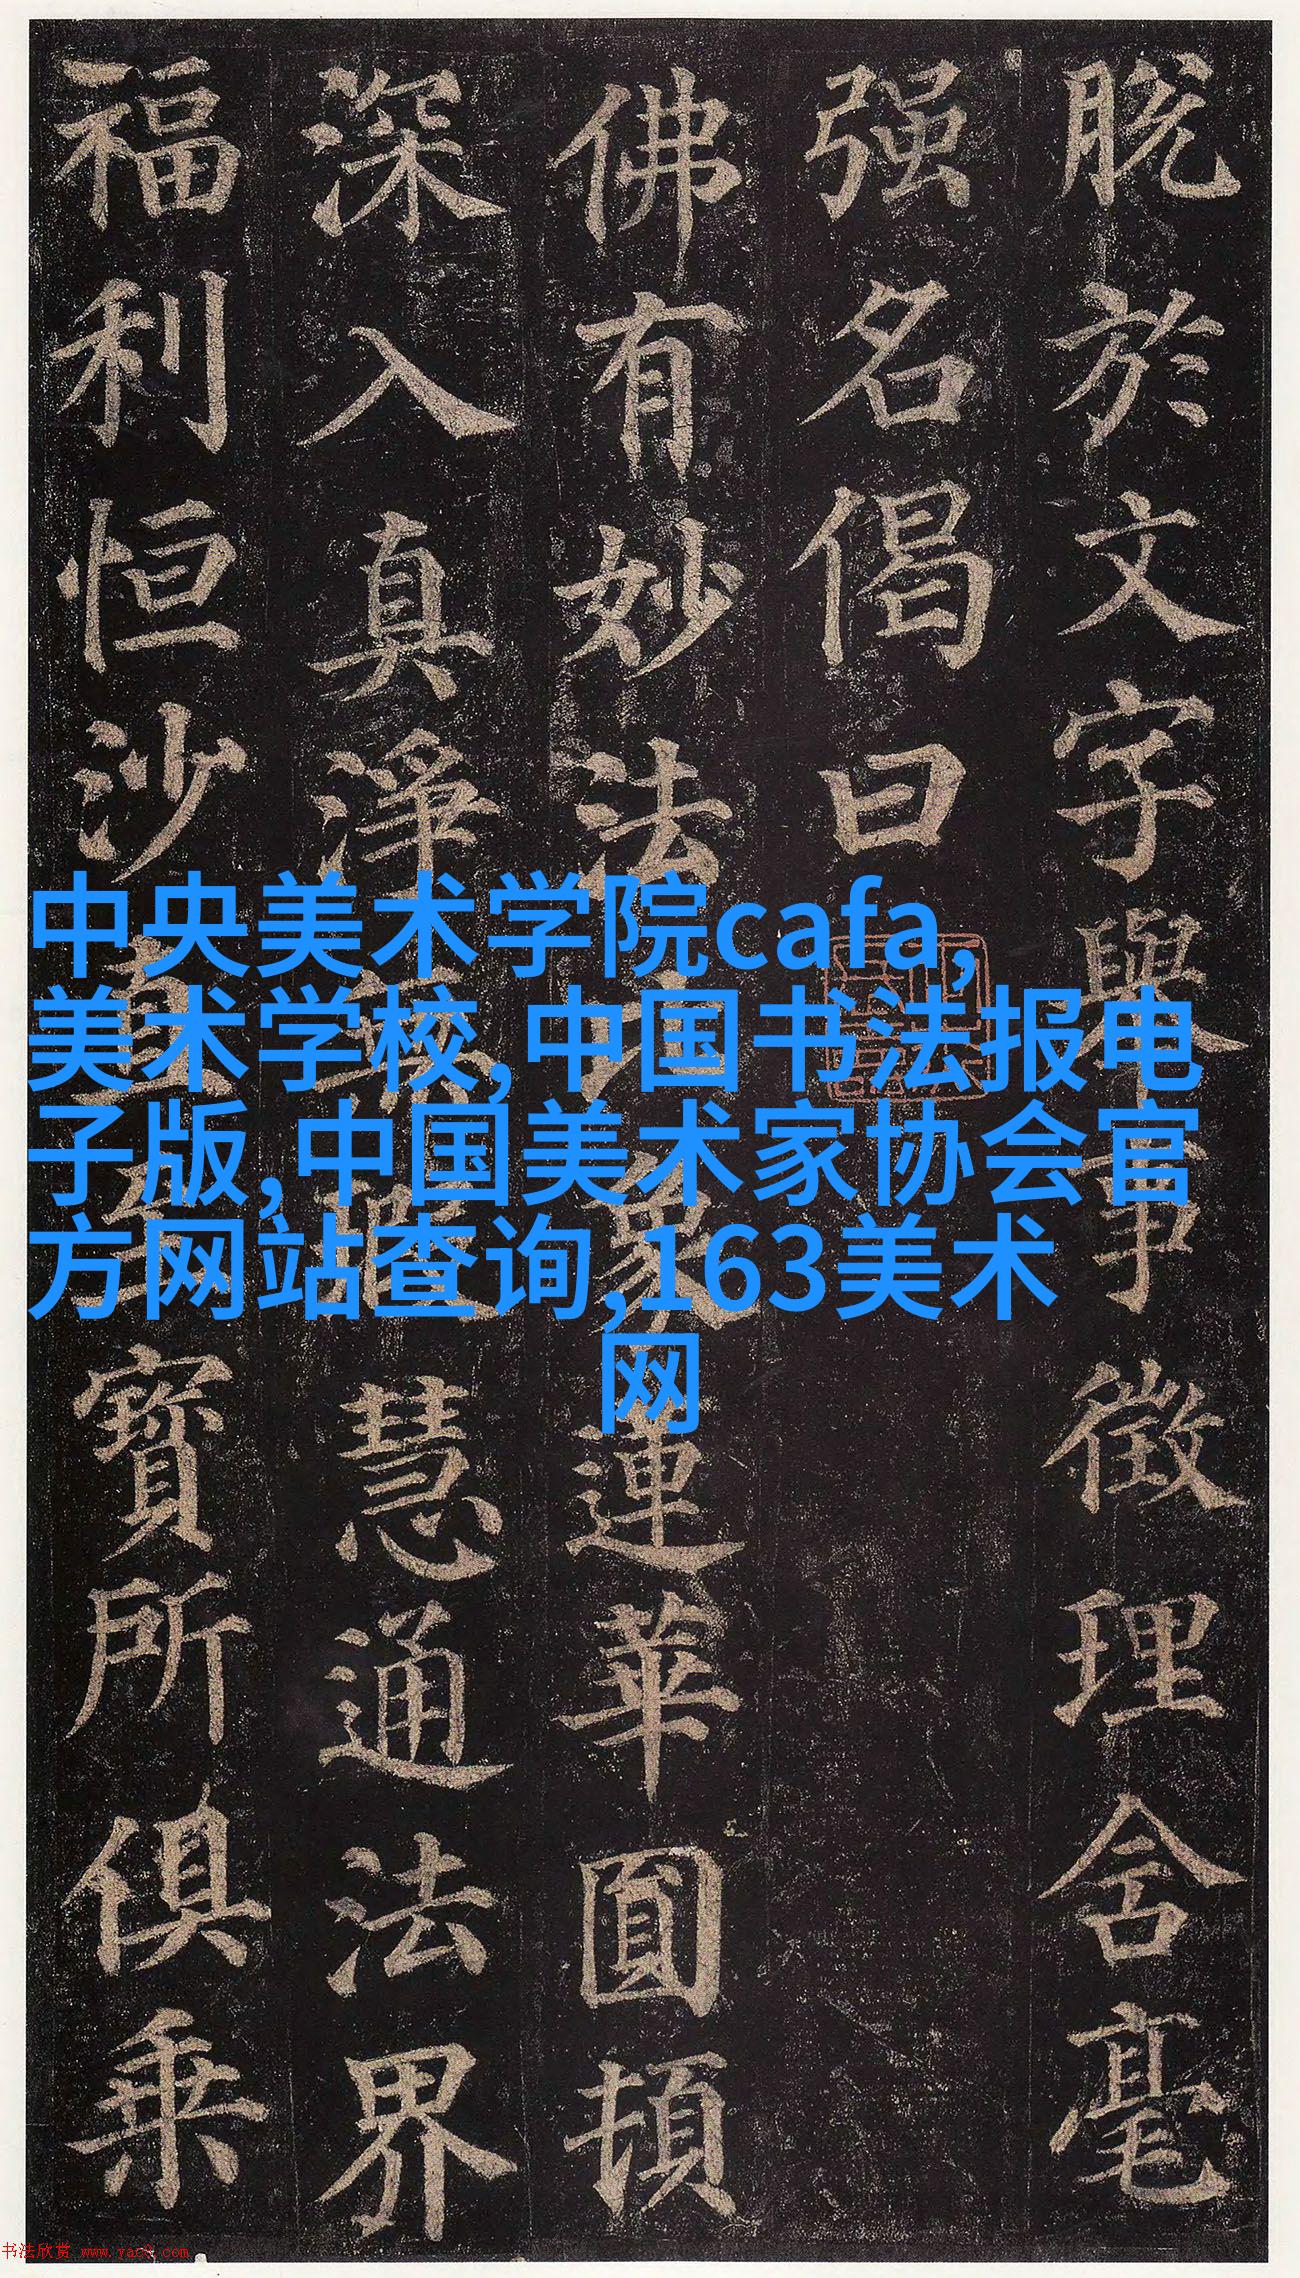 脱於文字舉事徵理含毫
强名偈曰
佛有妙法比象蓮華圓頓
深入真淨無瑕慧通法界
福利恒沙直至寶所俱乘
中央美术学院cafa,
美术学校,中国书法报电
子版,中国美术家协会官
方网站查询,163美术
网
书法欣赏 www.yac8.com